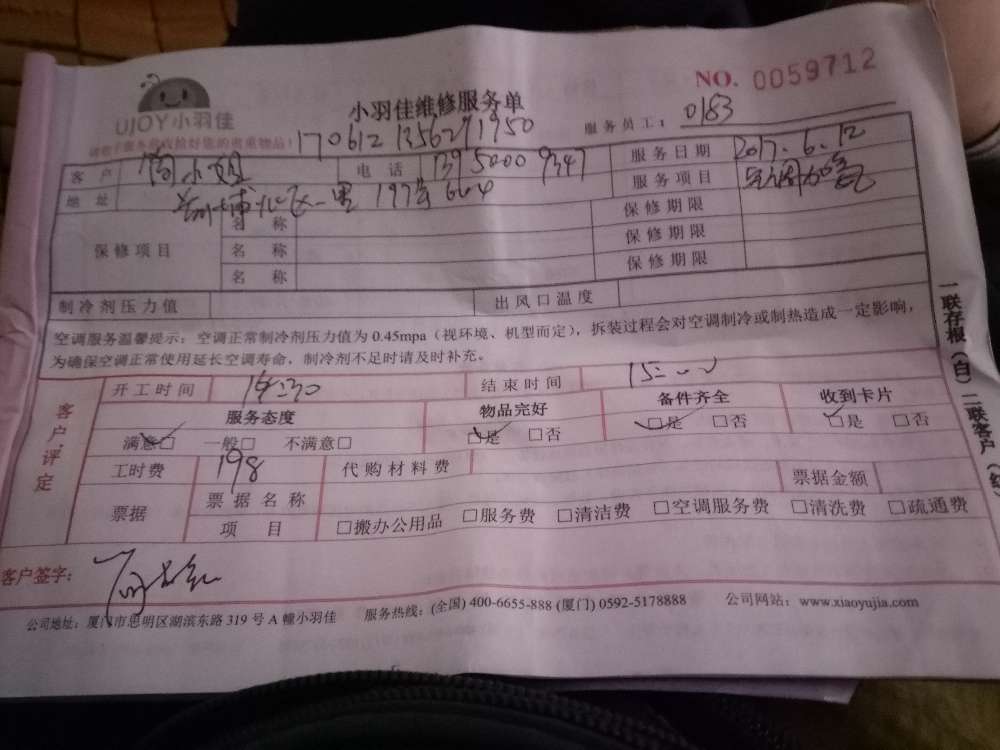 NO. 0059712
UJOY小羽佳
小羽佳维修服务单
服务员工: 0183
请您于服务前收拾好您的贵重物品! 170612 1356291950
客户 小姐 电话 13950009347 服务日期 2017.6.12
地址 一里 197号604 服务项目 空调加氟
保修项目 名称 保修期限
名称 保修期限
名称 保修期限
制冷剂压力值 出风口温度
空调服务温馨提示: 空调正常制冷剂压力值为0.45mpa(视环境、机型而定), 拆装过程会对空调制冷或制热造成一定影响,
为确保空调正常使用延长空调寿命, 制冷剂不足时请及时补充。
客户评定
开工时间 14:30 结束时间 15:00
服务态度 物品完好 备件齐全 收到卡片
满意□ 一般□ 不满意□ □是 □否 □是 □否 □是 □否
工时费 198 代购材料费
票据 票据名称 票据金额
项目 □搬办公用品 □服务费 □清洁费 □空调服务费 □清洗费 □疏通费
客户签字:
公司地址: 厦门市思明区湖滨东路319号A幢小羽佳 服务热线: (全国) 400-6655-888 (厦门) 0592-5178888 公司网站: www.xiaoyujia.com
一联存根(白) 二联客户(红